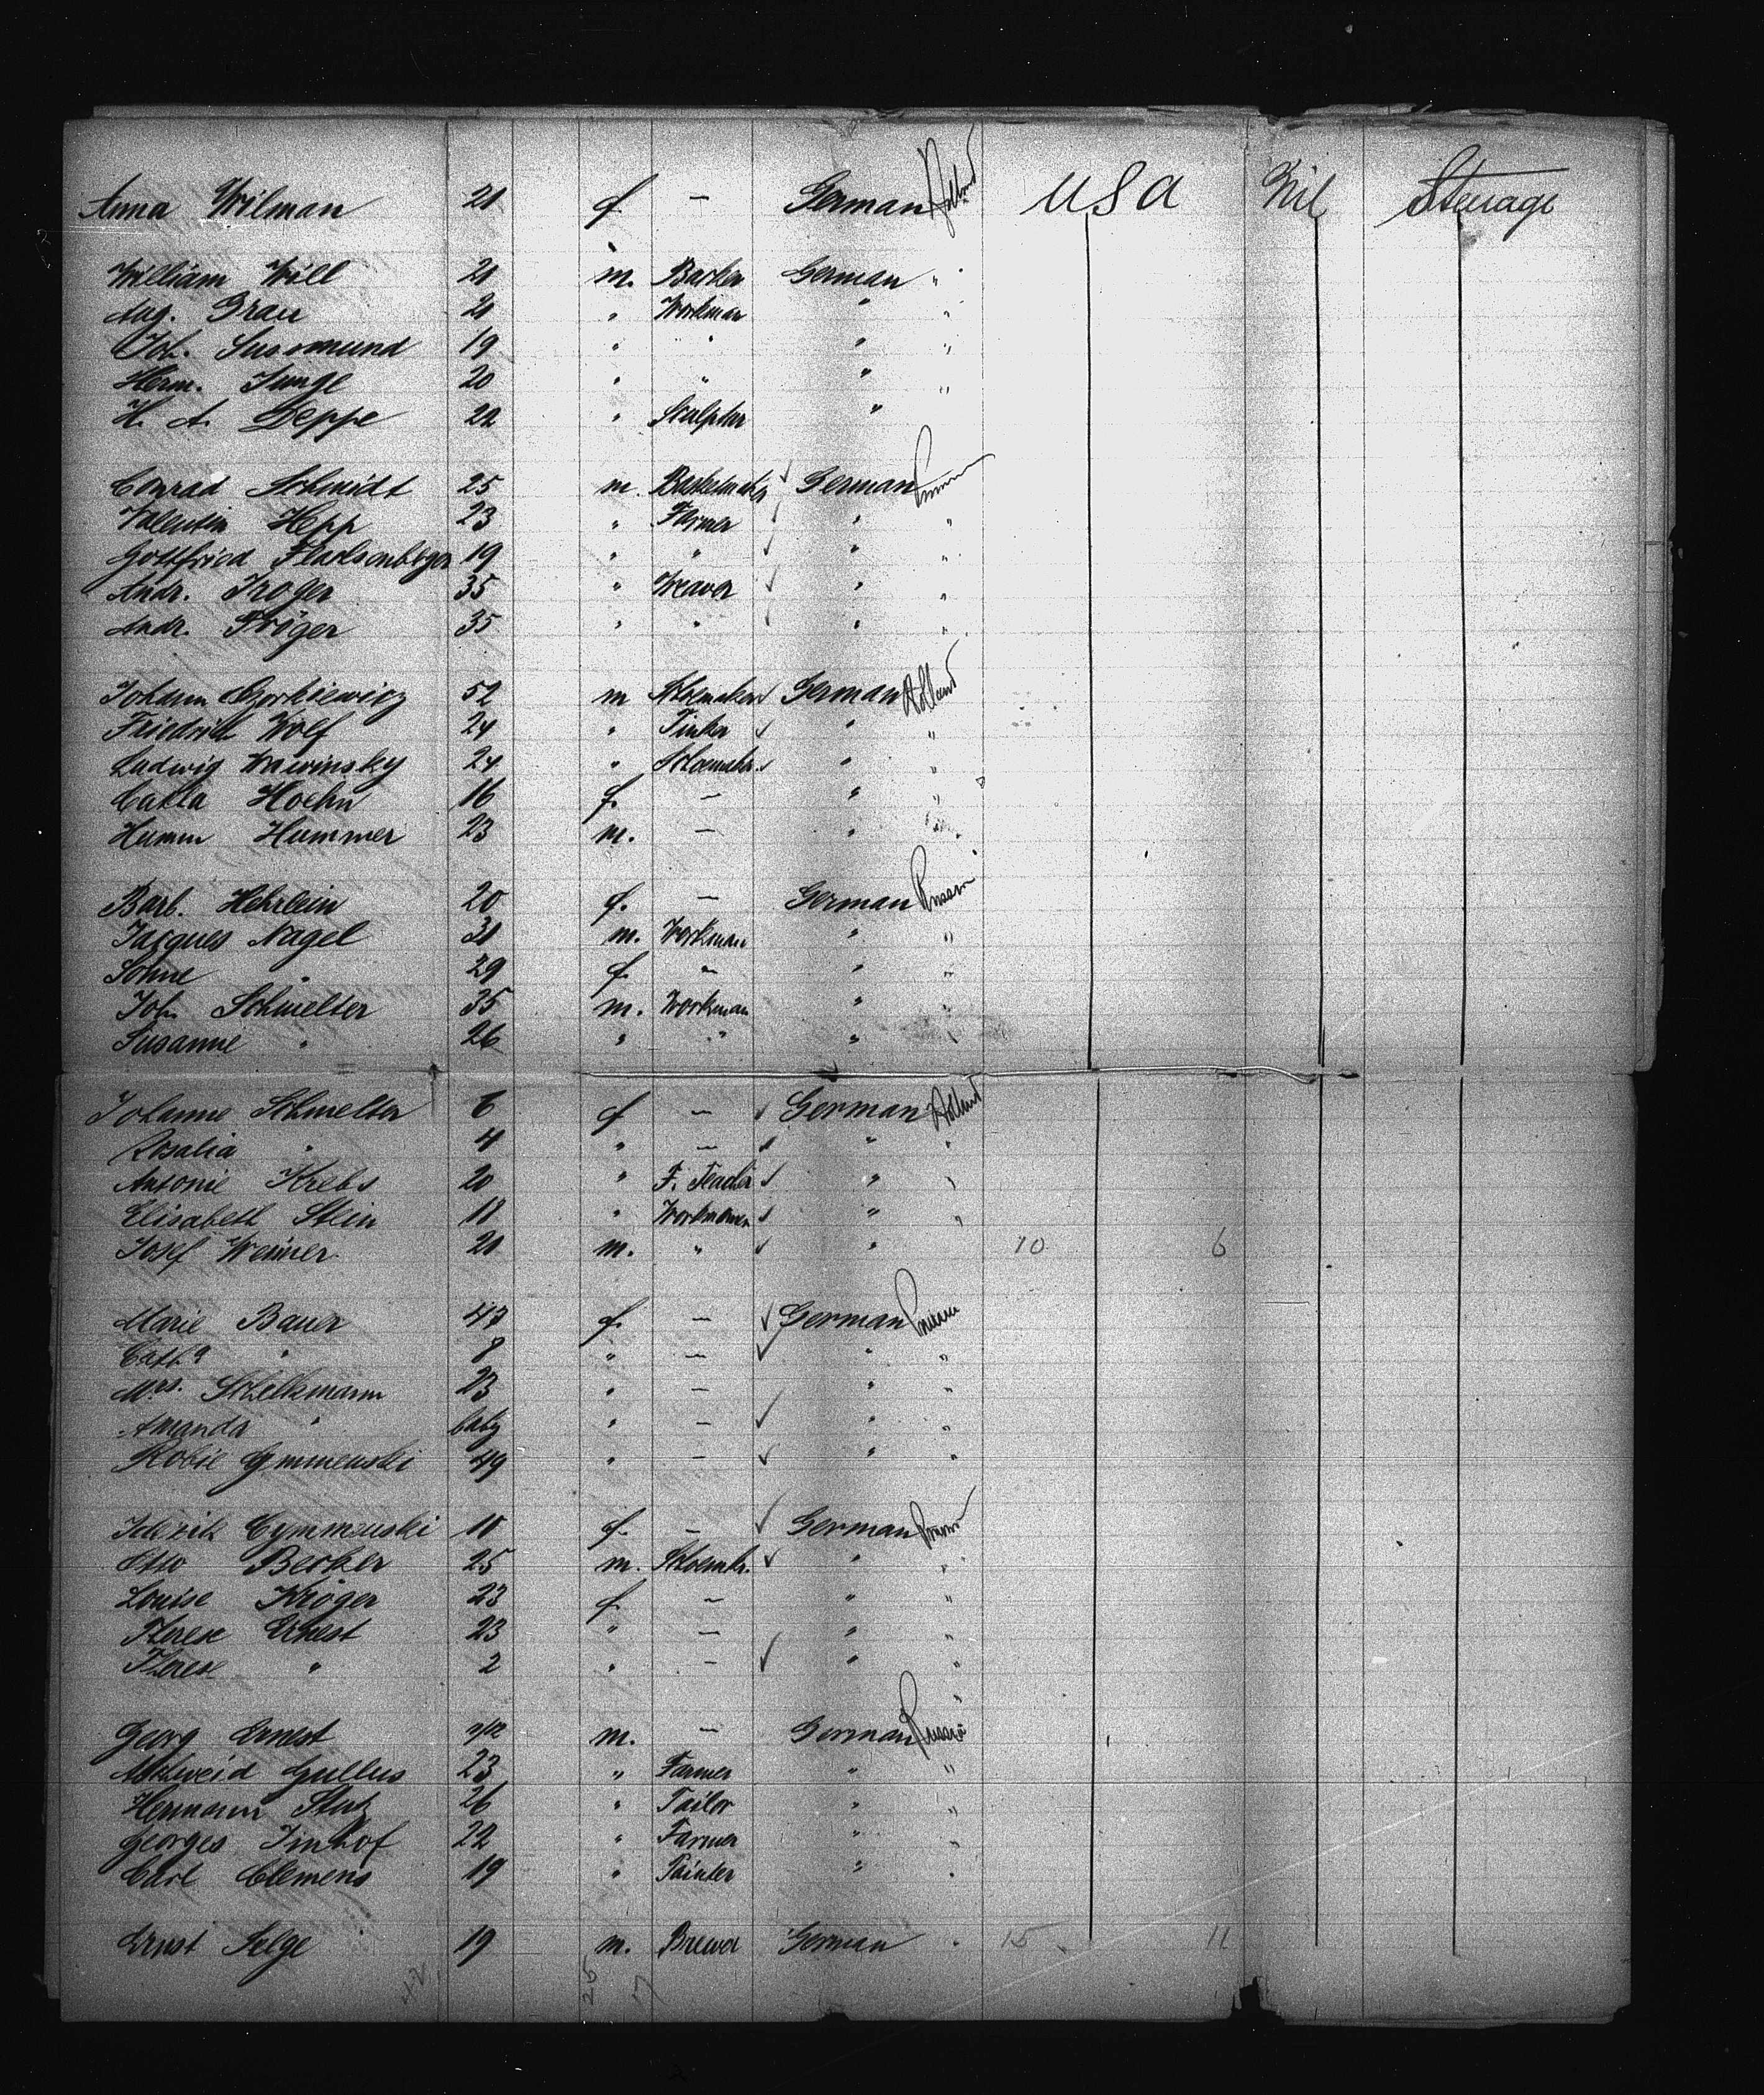 Anna Wilman 21 f. — German Holland USA Nil Steerage
William Will 21 m. Barber German "
Aug. Grau 21 " Workman " "
Joh. Sussmund 19 " " " "
Herm. Junge 20 " " " "
H. A. Deppe 22 " Sculpter "
Conrad Schmidt 25 m. ✓ German Prussia
Valentin Hepp 23 " Farmer ✓ " "
Gottfried 19 " " ✓ " "
Andr. 35 " Weaver ✓ " "
Andr. Kröger 35 " " ✓ " "
Johann 52 m Schoemaker ✓ German Holland
Friedrich Wolf 24 " Tinker ✓ " "
Ludwig 24 " Schoemaker ✓ " "
Hoehn 16 f. — " "
Hummer 23 m. — " "
Barb. Hehrlein 20 f. — German Prussia
Jacques Nagel 31 m. Workman " "
" 29 f. " " "
Joh. Schmelter 35 m. Workman " "
Susanne " 26 " " "
Johanne Schmelter 6 f — ✓ German Holland
Rosalia " 4 " — ✓ " "
Antonie Krebs 20 " F. Teacher ✓ " "
Elisabeth Stein 18 " ✓ " "
Josef Weimer 21 m. " ✓ " 10 6
Marie Bauer 47 f. — ✓ German Prussia
Cath. " 8 " — ✓ " "
Mrs. Schelkmann 23 " — " "
Amanda " baby " — ✓ " "
49 " — ✓ " "
Cymmeuski 10 f. — ✓ German Prussia
Otto Becker 25 m. Schoemkr. ✓ " "
Louise Kröger 23 f. — " "
Therese Ernest 23 " — " "
Therese " 2 " — ✓ " "
Georg Ernest m. — German Prussia
Gullus 23 " Farmer " "
Hermann 26 " Tailor " "
Georges Imhof 22 " Farmer " "
Carl Clemens 19 " Painter " "
Ernst Selge 19 m. Brewer German " 15 11
42 25 17